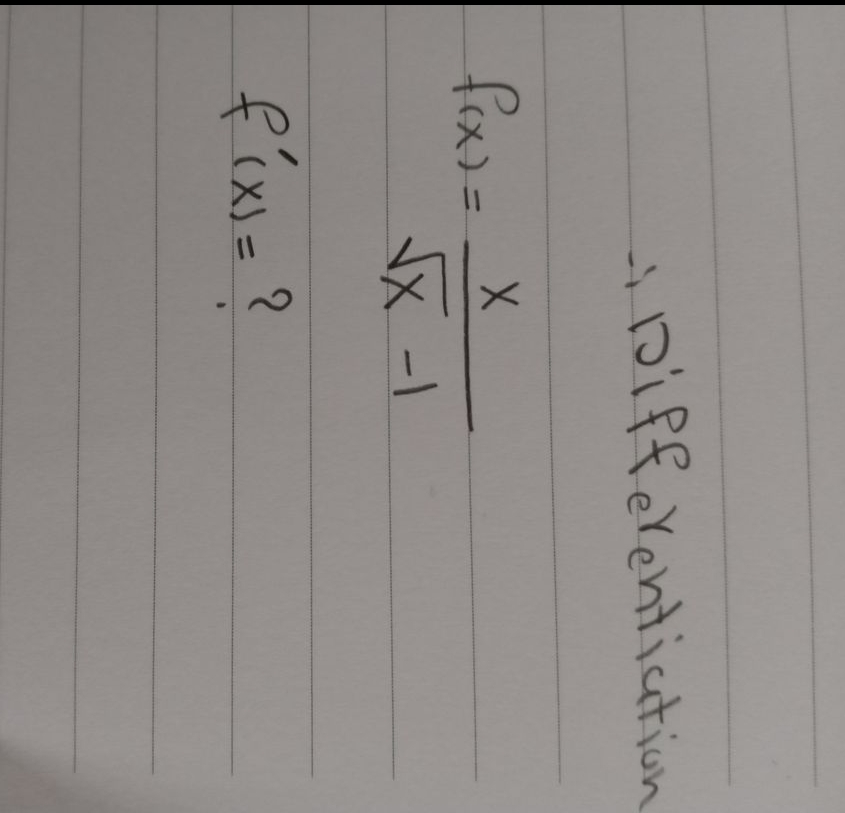 ∴ Differentiation
f(x) = x / √x - 1
f'(x) = ?